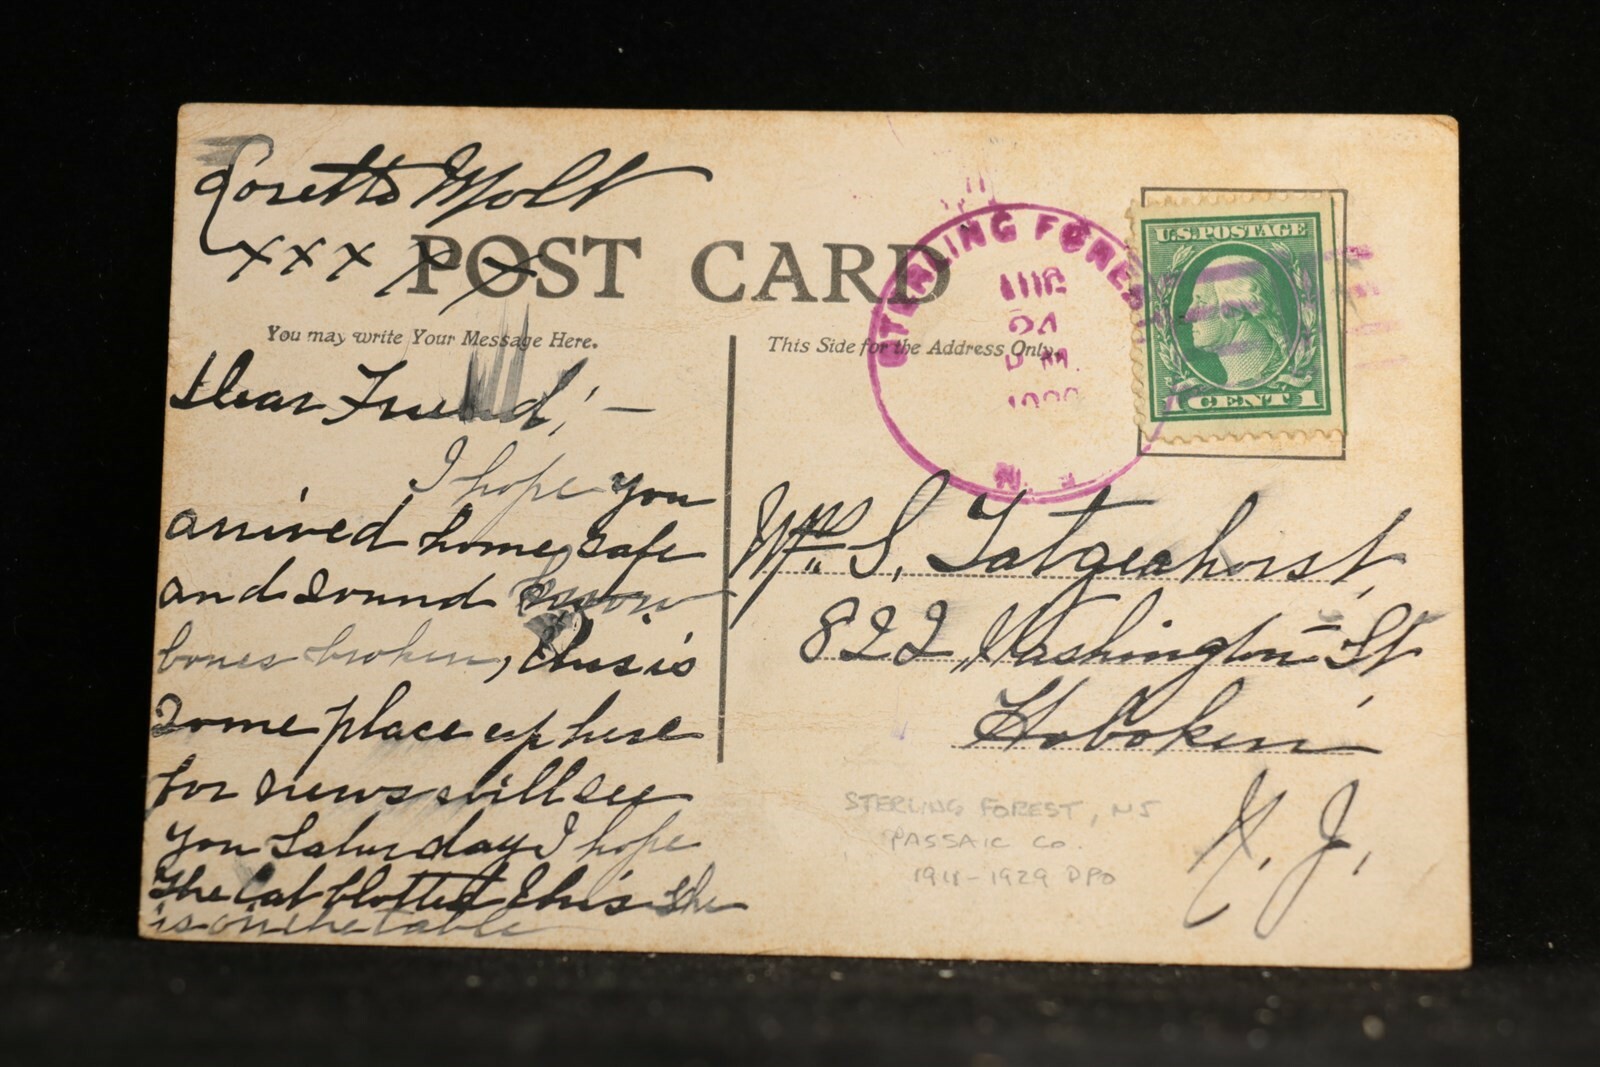 Loretta Molt
xxx x x
POST CARD
You may write Your Message Here.
Dear Friend, —
I hope you
arrived home safe
and sound
bones broken, this is
some place up here
for news will see
you Saturday I hope
The Cat blotted this She
is on the table
This Side for the Address Only.
STERLING FOREST
AUG
24
P.M.
N.J.
U.S.POSTAGE
1 CENT 1
Mrs. S. Tatgenhorst,
822 Washington St
Hoboken
N. J.
STERLING FOREST, NJ
PASSAIC Co.
1918-1929 DPO